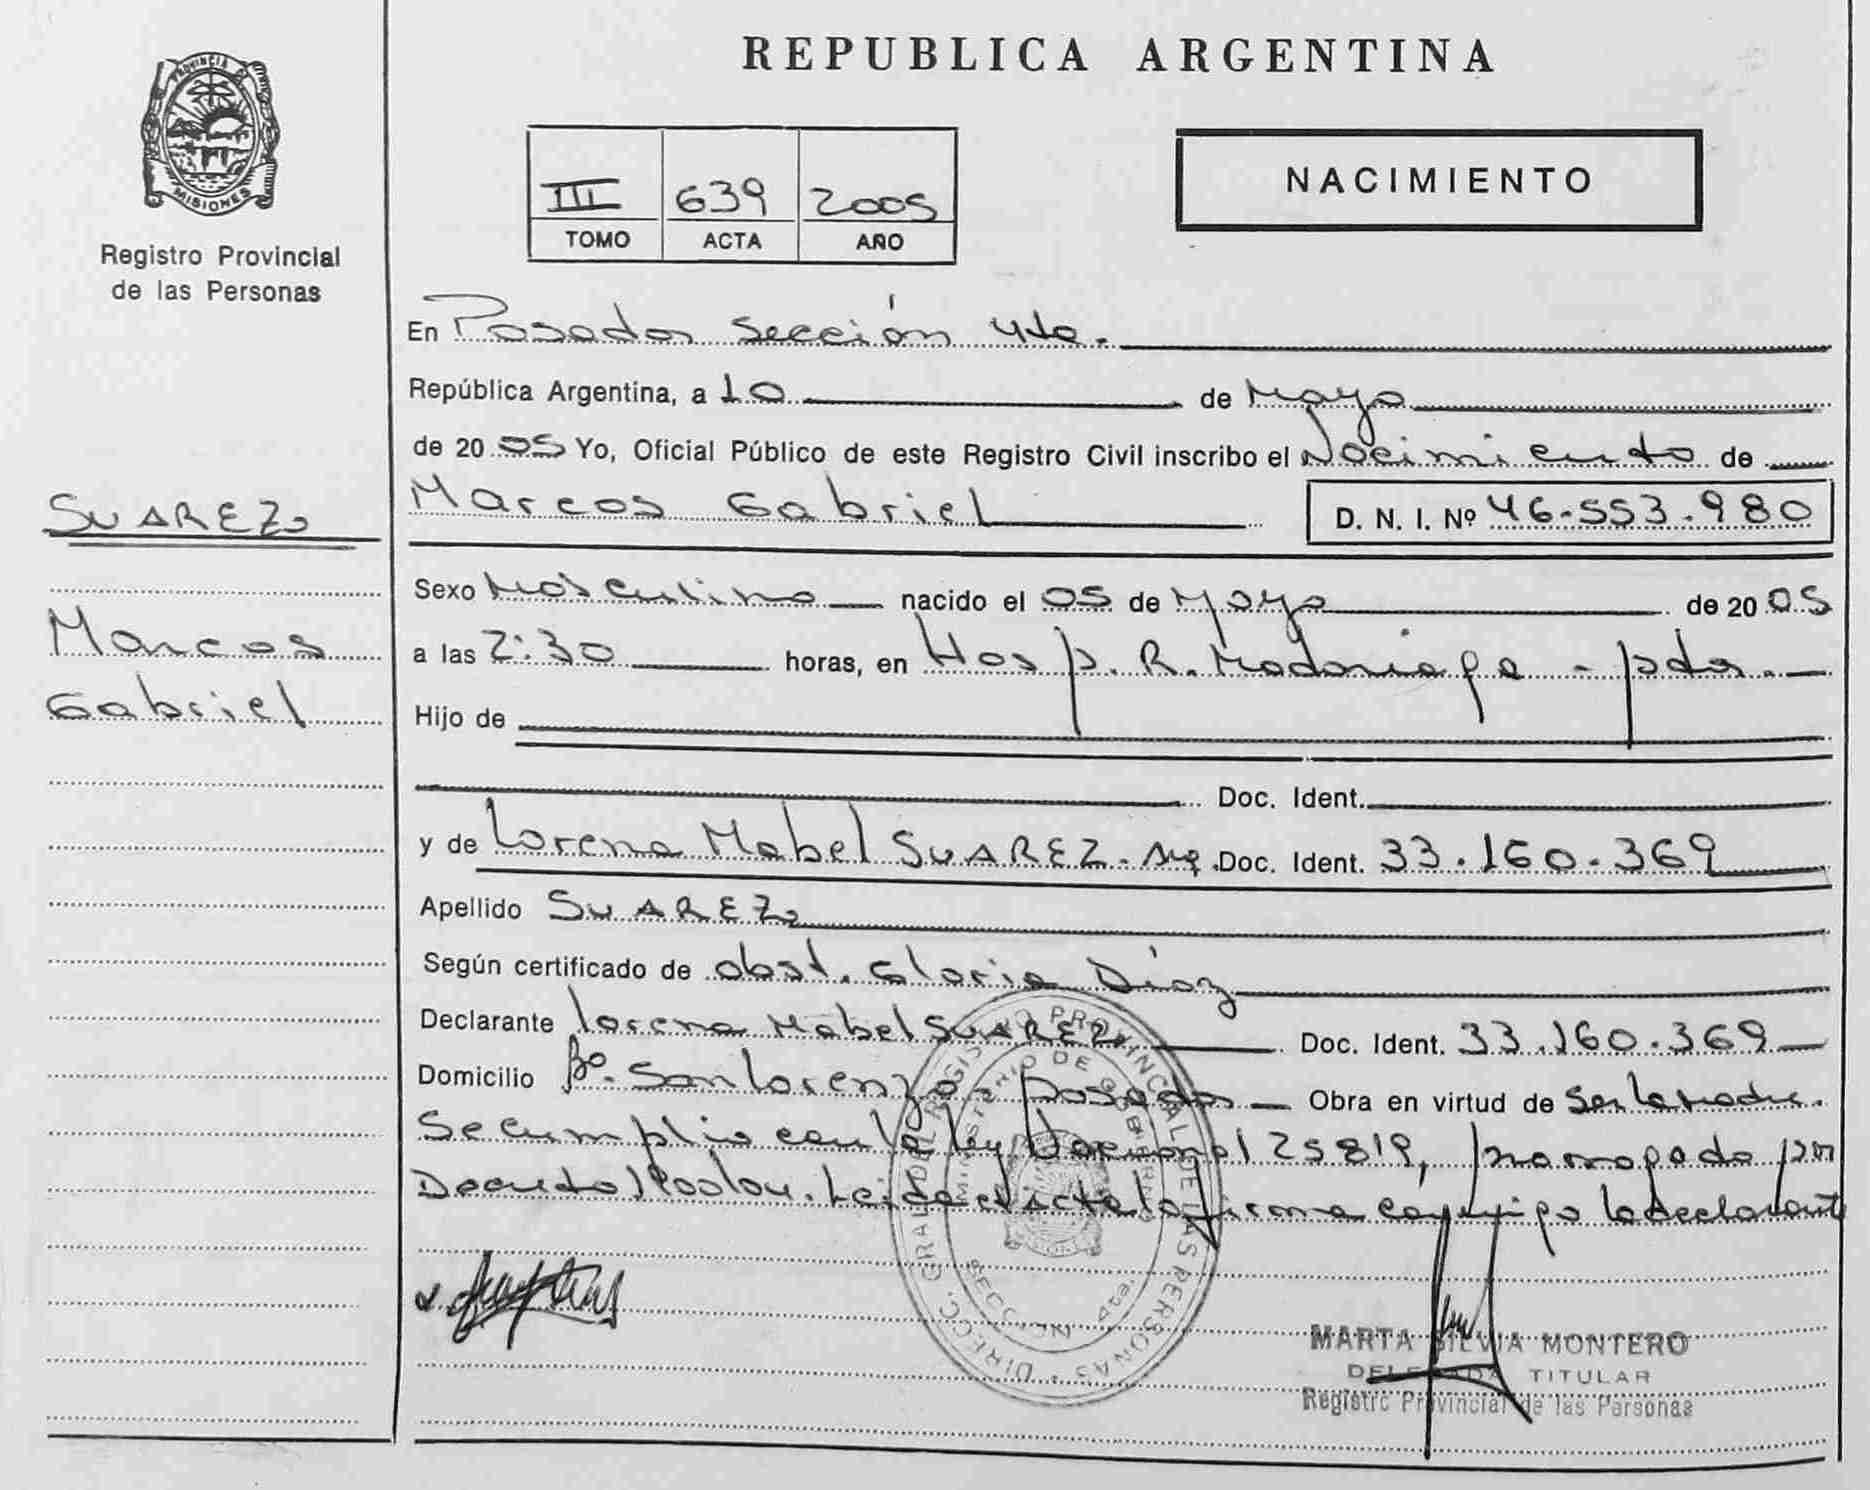 REPUBLICA ARGENTINA
PROVINCIA DE
MISIONES
Registro Provincial
de las Personas
III 639 2005
TOMO ACTA AÑO
NACIMIENTO
En Posadas Sección 4ta.
República Argentina, a 10 de Mayo
de 2005 Yo, Oficial Público de este Registro Civil inscribo el Nacimiento de
Marcos Gabriel D. N. I. Nº 46.553.980
SUAREZ
Marcos
Gabriel
Sexo Masculino nacido el 05 de Mayo de 2005
a las 2:30 horas, en Hosp. R. Madariaga - pdas.
Hijo de
Doc. Ident.
y de Lorena Mabel SUAREZ - Arg. Doc. Ident. 33.160.369
Apellido SUAREZ
Según certificado de obst. Gloria Díaz
Declarante Lorena Mabel SUAREZ Doc. Ident. 33.160.369
Domicilio Bº. San Lorenzo - Posadas Obra en virtud de Ser la Madre.
Se cumplio con la ley Nacional 25819, prorrogado por
Decreto Leida el Acta la firma conmigo la declarante
DIRECC. GRAL. DEL REGISTRO PROVINCIAL DE LAS PERSONAS
MINISTERIO DE GOBIERNO
SECCION 4ta.
MARTA SILVIA MONTERO
DELEGADA TITULAR
Registro Provincial de las Personas